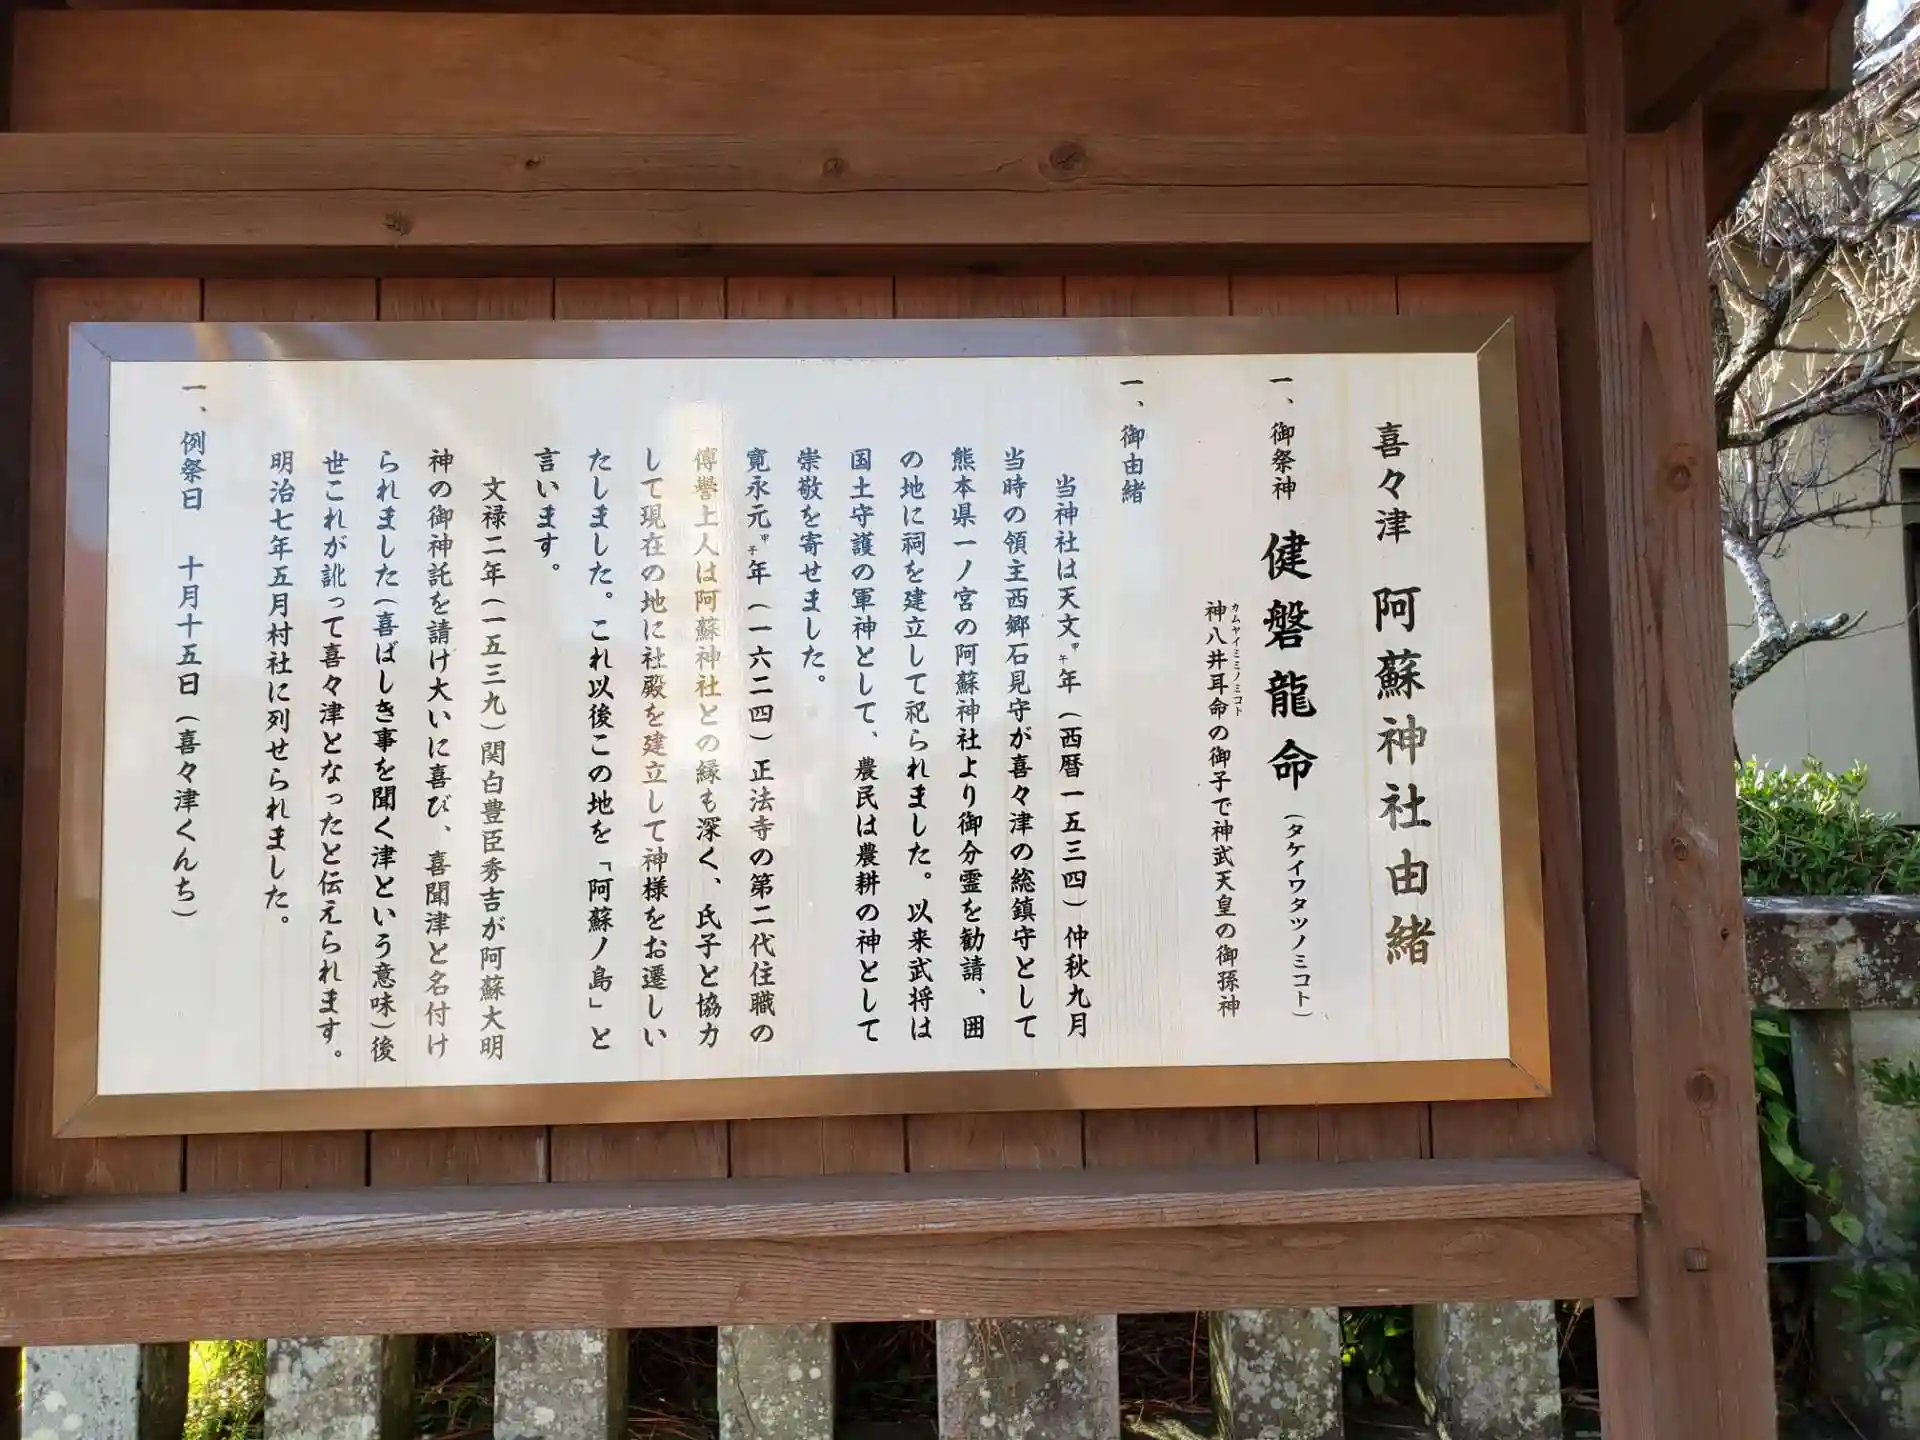 喜々津 阿蘇神社由緒
一、御祭神 健磐龍命（タケイワタツノミコト）
カムヤイミミノミコト
神八井耳命の御子で神武天皇の御孫神
一、御由緒
当神社は天文甲午年（西暦一五三四）仲秋九月
当時の領主西郷石見守が喜々津の総鎮守として
熊本県一ノ宮の阿蘇神社より御分霊を勧請、囲
の地に祠を建立して祀られました。以来武将は
国土守護の軍神として、農民は農耕の神として
崇敬を寄せました。
寛永元甲子年（一六二四）正法寺の第二代住職の
傳誉上人は阿蘇神社との縁も深く、氏子と協力
して現在の地に社殿を建立して神様をお遷しい
たしました。これ以後この地を「阿蘇ノ島」と
言います。
文禄二年（一五三九）関白豊臣秀吉が阿蘇大明
神の御神託を請け大いに喜び、喜聞津と名付け
られました（喜ばしき事を聞く津という意味）後
世これが訛って喜々津となったと伝えられます。
明治七年五月村社に列せられました。
一、例祭日 十月十五日（喜々津くんち）